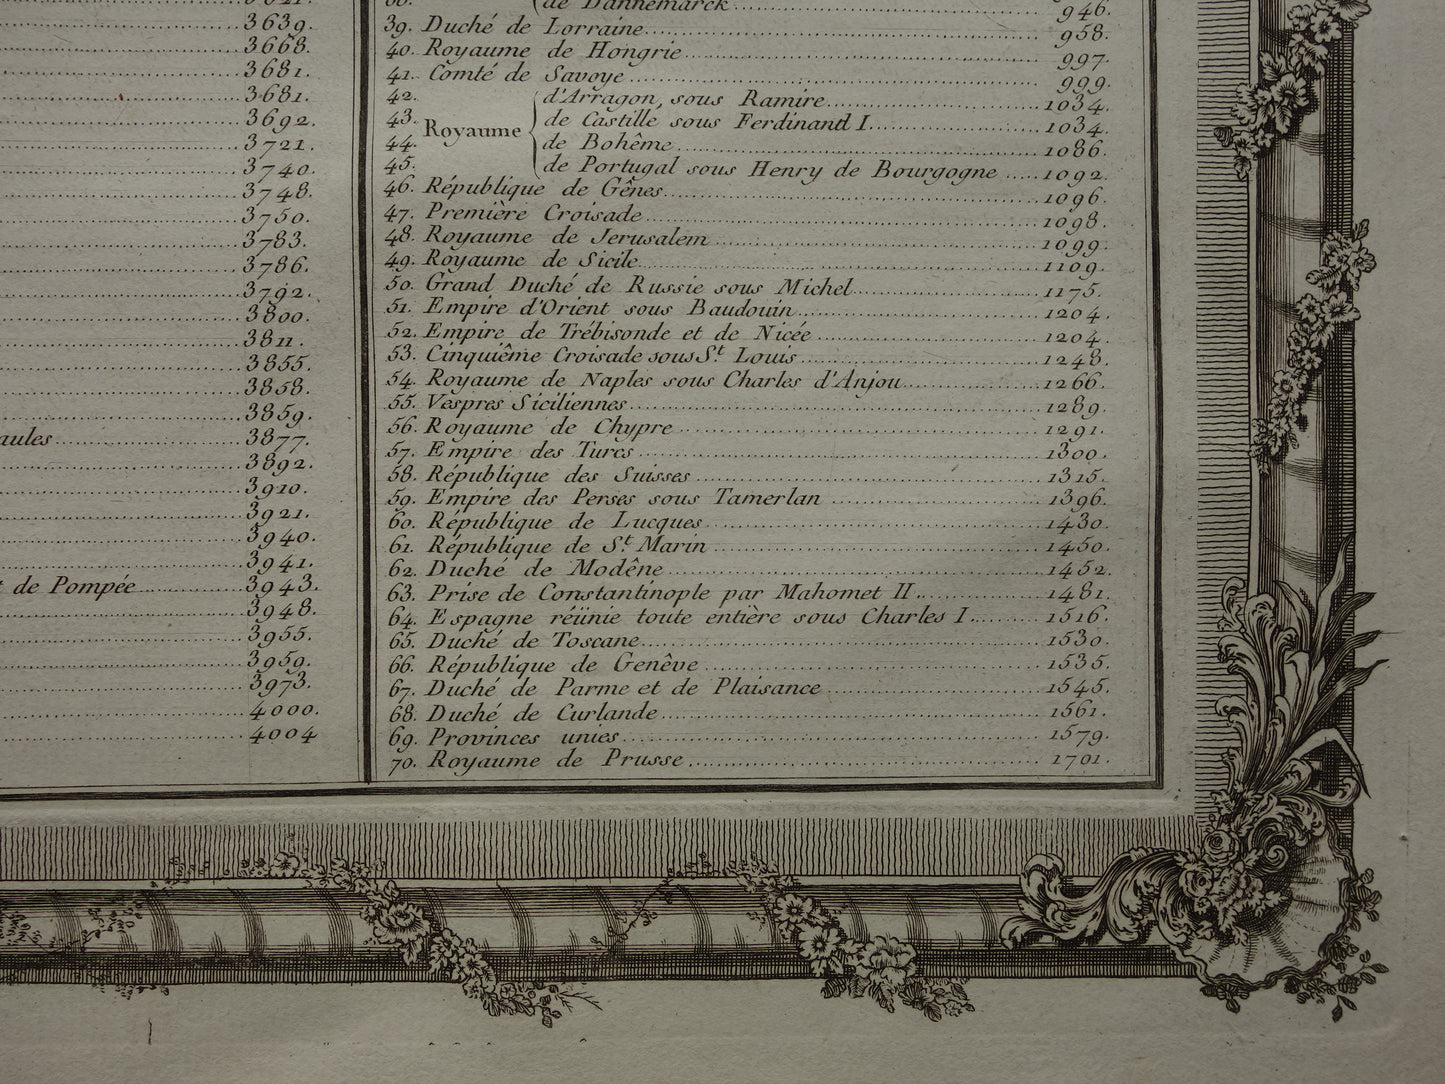 3639.
3668.
3681.
3681.
3692.
3721.
3740.
3748.
3750.
3783.
3786.
3792.
3800.
3811.
3855.
3858.
3859.
aules 3877.
3892.
3910.
3921.
3940.
3941.
t de Pompée 3943.
3948.
3955.
3959.
3973.
4000.
4004
de Dannemarck 946.
39. Duché de Lorraine 958.
40. Royaume de Hongrie 997.
41. Comté de Savoye 999.
42. d'Arragon, sous Ramire 1034.
43. Royaume de Castille sous Ferdinand I. 1034.
44. de Bohême 1086.
45. de Portugal sous Henry de Bourgogne 1092.
46. République de Gênes 1096.
47. Première Croisade 1098.
48. Royaume de Jerusalem 1099.
49. Royaume de Sicile 1109.
50. Grand Duché de Russie sous Michel 1175.
51. Empire d'Orient sous Baudouin 1204.
52. Empire de Trébisonde et de Nicée 1204.
53. Cinquiême Croisade sous St. Louis 1248.
54. Royaume de Naples sous Charles d'Anjou 1266.
55. Vespres Siciliennes 1289.
56. Royaume de Chypre 1291.
57. Empire des Turcs 1300.
58. République des Suisses 1315.
59. Empire des Perses sous Tamerlan 1396.
60. République de Lucques 1430.
61. République de St. Marin 1450.
62. Duché de Modêne 1452.
63. Prise de Constantinople par Mahomet II. 1481.
64. Espagne réünie toute entière sous Charles I. 1516.
65. Duché de Toscane 1530.
66. République de Genêve 1535.
67. Duché de Parme et de Plaisance 1545.
68. Duché de Curlande 1561.
69. Provinces unies 1579.
70. Royaume de Prusse 1701.